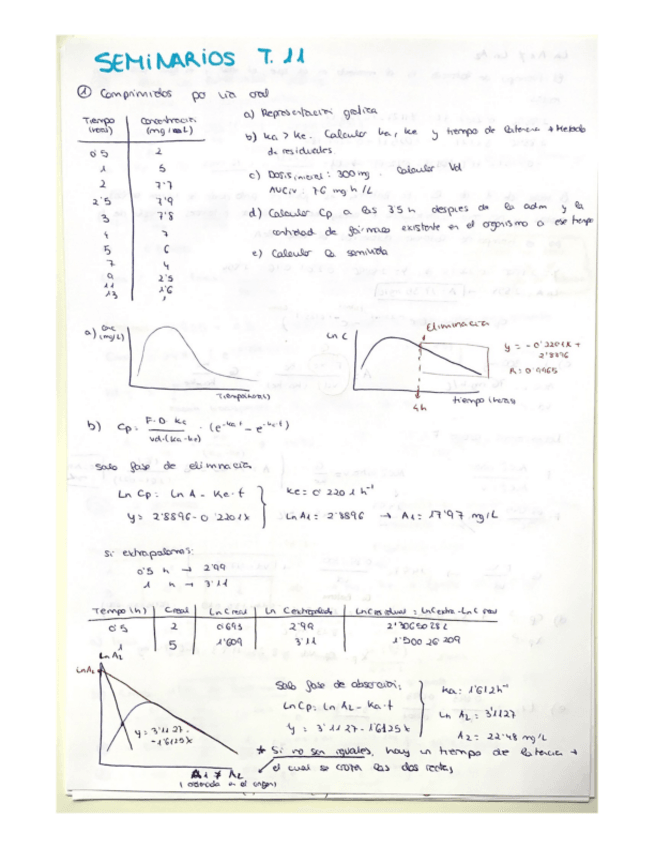 SEMINARIOS T.11
① Comprimidos por via oral
Tiempo (horas) Concentracion (mg/L)
0'5 2
1 5
2 7'7
2'5 7'9
3 7'8
4 7
5 6
7 4
9 2'5
11 1'6
13
a) Representación gráfica
b) ka > ke. Calcular ka, ke y tiempo de latencia → Metodo
de residuales
c) Dosis inicial: 300 mg. Calcular Vd
AUCiv: 76 mg h/L
d) Calcular Cp a las 3'5 h despues de la adm y la
cantidad de fármaco existente en el organismo a ese tiempo
e) Calcular la semivida
a) (mg/L)
Tiempo (horas)
Ln C
Eliminación
y = -0'2201x +
2'8896
R = 0'9965
5h
tiempo (horas)
b) Cp = F·D·ka / Vd·(ka-ke) · (e^-ka·t - e^-ke·t)
Solo fase de eliminación
Ln Cp = Ln A - Ke·t
Ke = 0'2201 h⁻¹
y = 2'8896 - 0'2201x
Ln A₁ = 2'8896 → A₁ = 17'97 mg/L
Si extrapolamos:
0'5 h → 2'99
1 h → 3'11
Tiempo (h) Creal Ln Creal Ln Cextrapolada Ln Cresidual = Ln Cextra - Ln C real
0'5 2 0'693 2'99 2'30650286
1 5 1'609 3'11 1'50026209
Ln A₂
Ln A₁
y = 3'1127 -
-1'6125x
Solo fase de absorción:
Ln Cp = Ln A₂ - Ka·t
y = 3'1127 - 1'6125x
Ka = 1'612 h⁻¹
Ln A₂ = 3'1127
A₂ = 22'48 mg/L
* Si no son iguales, hay un tiempo de latencia →
el cual se cortan las dos rectas
A₁ ≠ A₂
(ordenada en el origen)